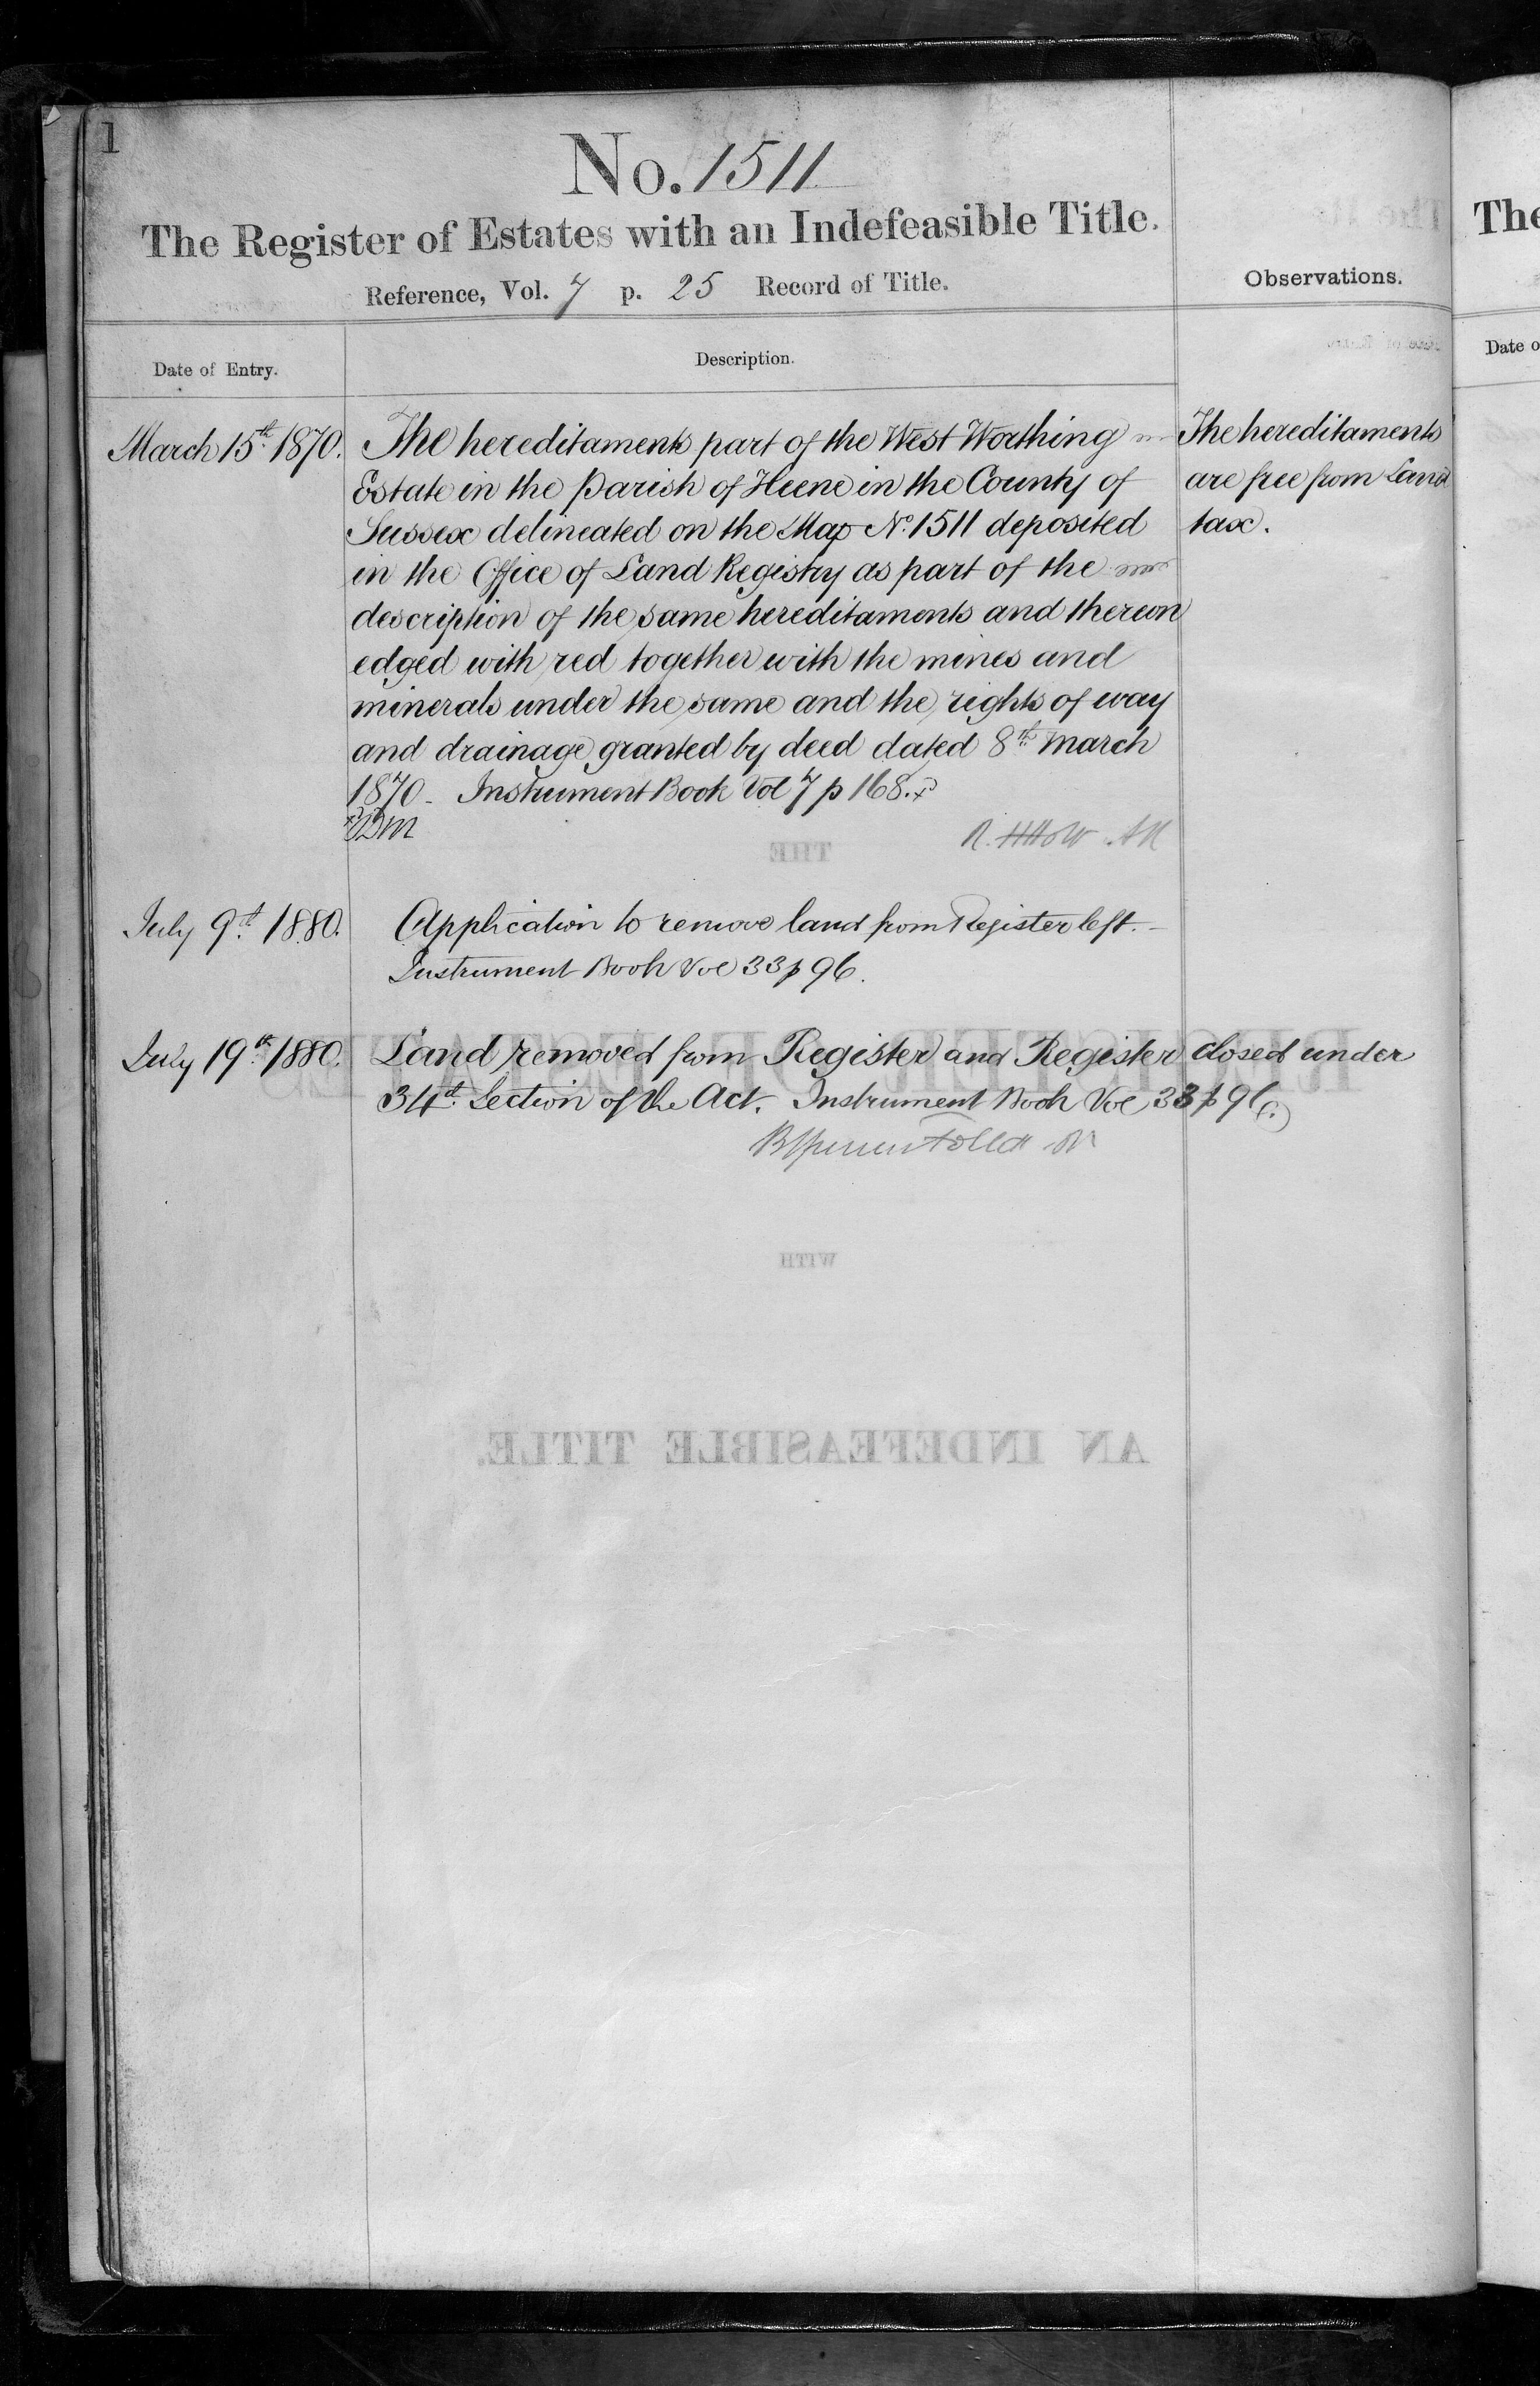 1
No. 1511
The Register of Estates with an Indefeasible Title.
Reference, Vol. 7 p. 25 Record of Title.
Observations.
Date of Entry.
Description.
March 15th 1870.
The hereditaments part of the West Worthing
Estate in the Parish of Heene in the County of
Sussex delineated on the Map No. 1511 deposited
in the Office of Land Registry as part of the
description of the same hereditaments and thereon
edged with red together with the mines and
minerals under the same and the rights of way
and drainage granted by deed dated 8th March
1870 - Instrument Book Vol 7 p 168. x
The hereditaments
are free from Land
tax.
July 9th 1880.
Application to remove land from Register left. -
Instrument Book Vol 33 p 96.
July 19th 1880.
Land removed from Register and Register closed under
34th Section of the Act. Instrument Book Vol 33 p 96.
THE
REGISTER OF ESTATES
WITH
AN INDEFEASIBLE TITLE.
The
Date o